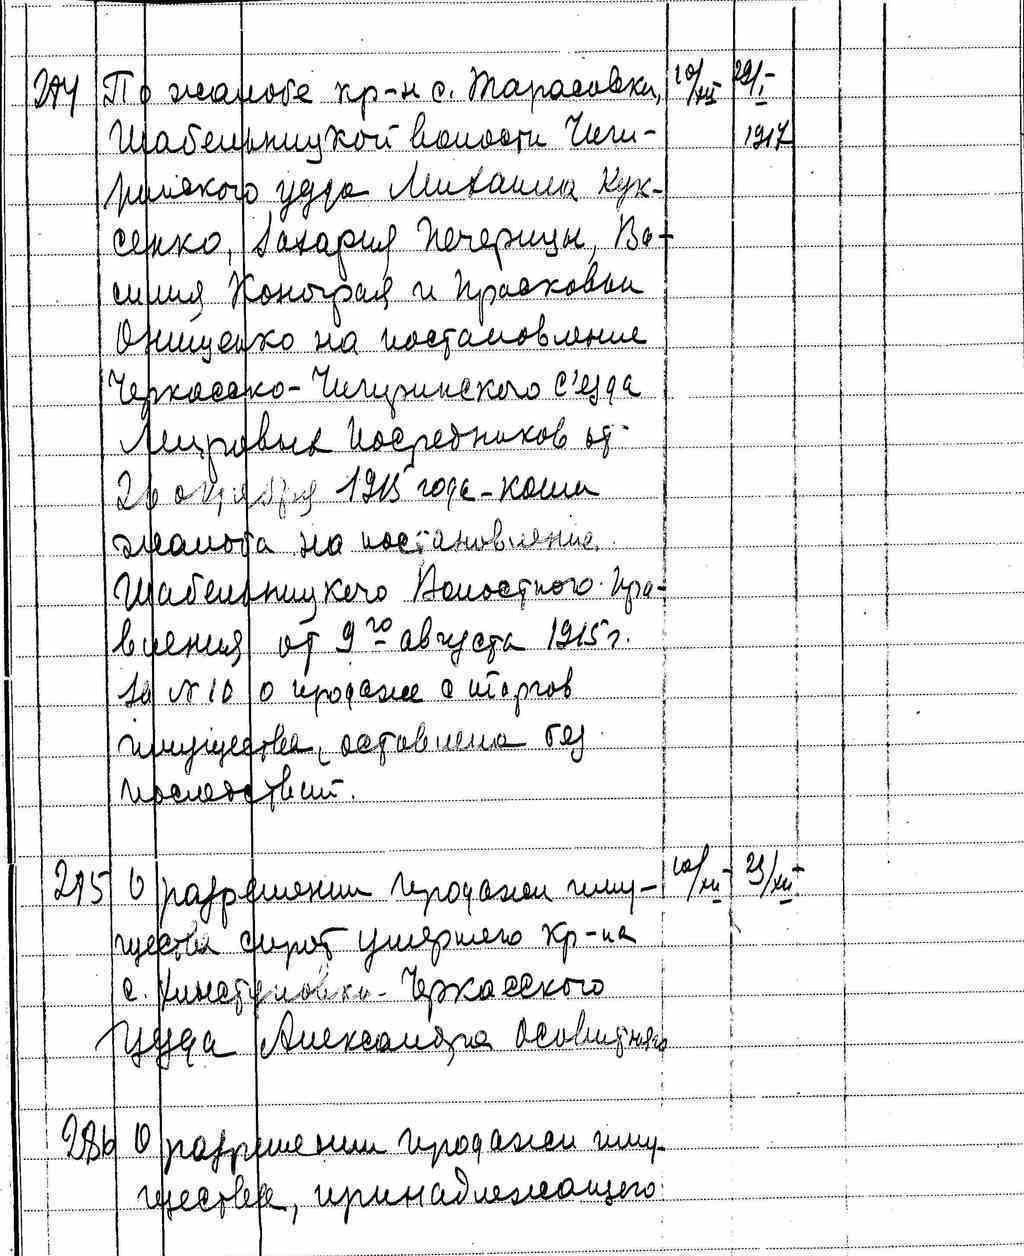 По жалобе кр-н с. Тарасовки, 10/XII 22/I
Шабельницкой волости Чиги- 1917
ринского уезда Михаила Кук-
сенко, Захария Печерицы, Ва-
силия Конограя и Прасковьи
Онищенко на постановление
Черкасско-Чигиринского с'езда
Мировых Посредников от
26 октября 1915 года - коим
жалоба на постановление
Шабельницкого Волостного Пра-
вления от 9го августа 1915 г.
за № 10 о продаже с торгов
имущества, оставлена без
последствий.
О разрешении продажи иму- 10/XII 23/XII
щества сирот умершего кр-на
с. Черкасского
уезда Александра
286 О разрешении продажи иму-
щества, принадлежащего